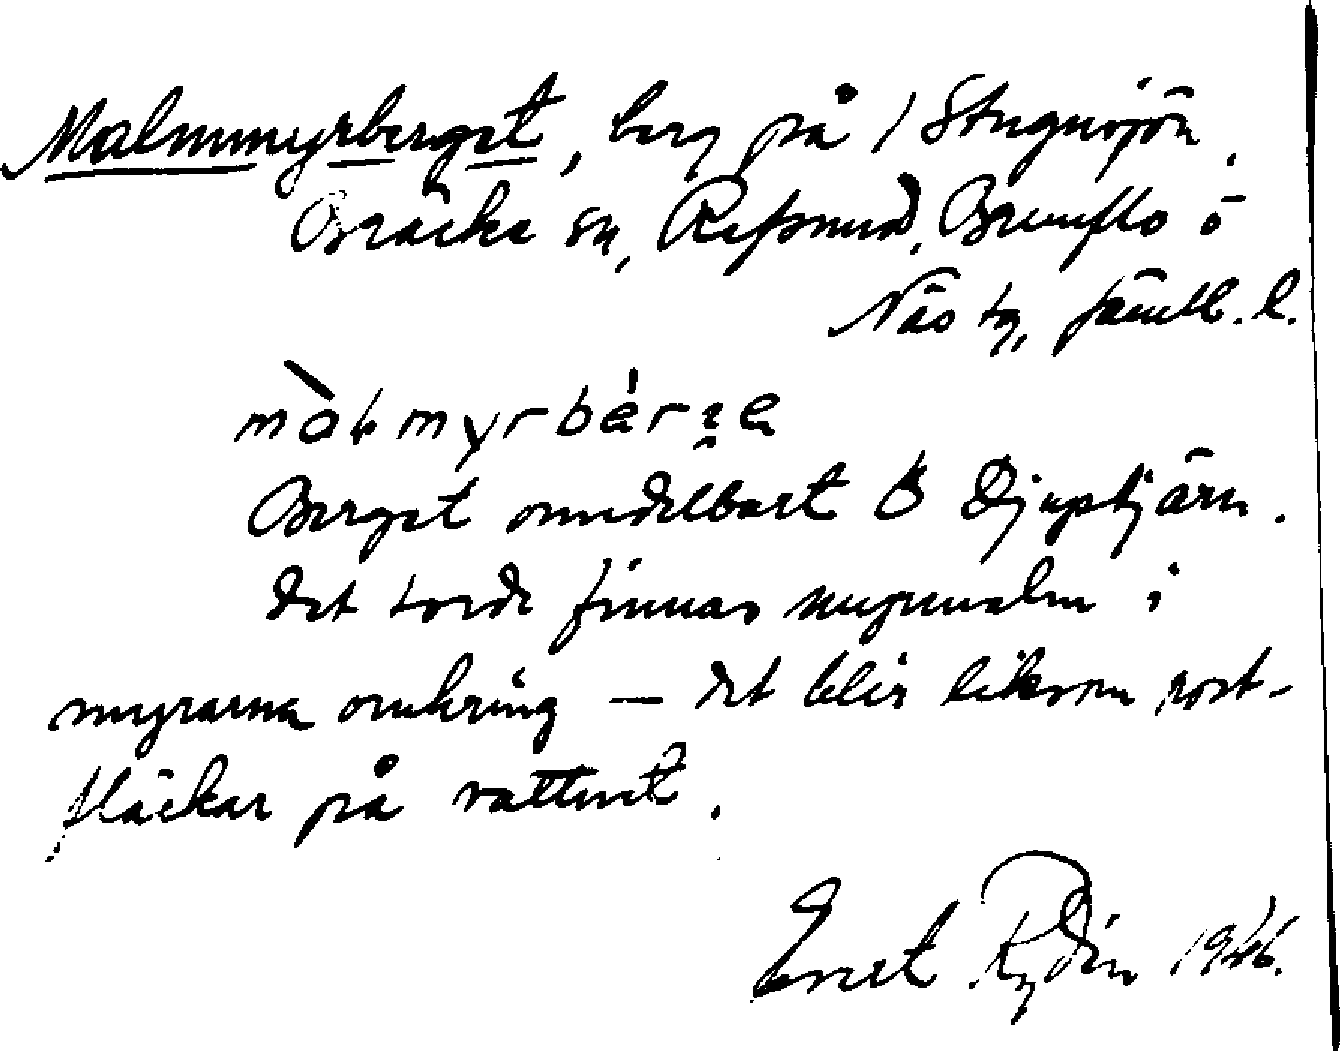 Malmmyrberget, berg på / Stugusjön,
Bräcke sn, Refsund, Brunflo o
Näs tg, Jämtl. l.
Berget omedelbart Ö Djuptjärn.
Det torde finnas myrmalm i
myrarna omkring — det blir liksom rost-
fläckar på vattnet.
Ernst Rydin 1946.